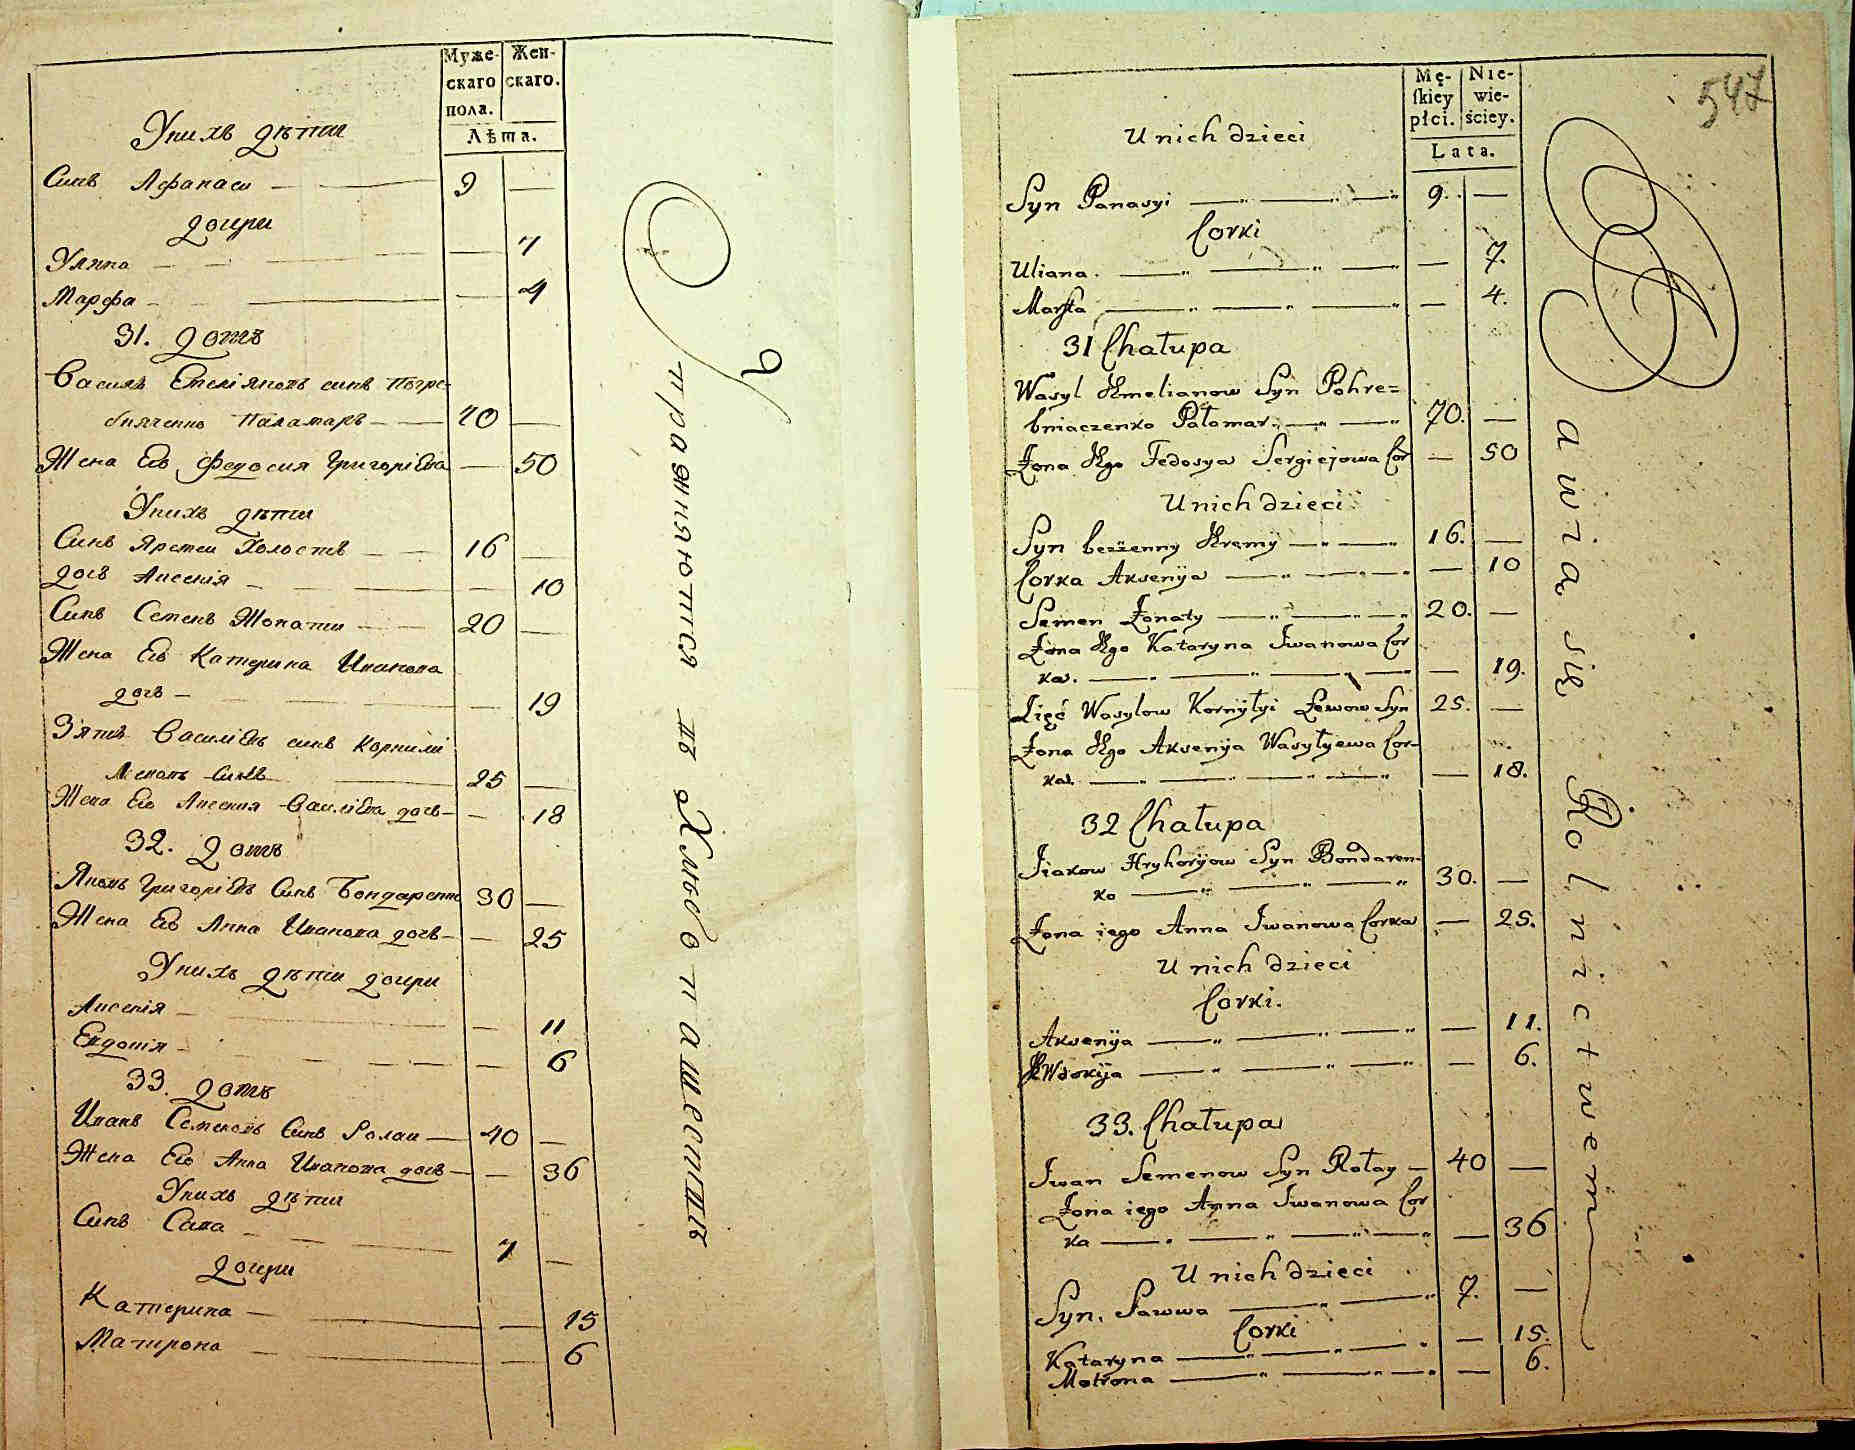 Муже-
скаго
пола.
Жен-
скаго.
Лѣта.
Унихъ дѣти
Синъ Афанаси 9 —
дочри
Улита — 7
Марфа — 4
31. домъ
Василь Емеліяновъ синъ Погре-
бняченко Паламаръ 70 —
Жена Его Федосия Григоріева — 50
Унихъ дѣти
Синъ Яреми Холостъ 16 —
дочь Аксенія — 10
Синъ Семенъ Жонати 20 —
Жена Его Катерина Иванова
дочь — 19
Зять Василіевъ синъ Корнилі
Леновъ Синъ 25 —
Жена Его Аксения Василіева дочь — 18
32. домъ
Яковъ Григоріевъ Синъ Бондаренко 30 —
Жена Его Анна Иванова дочь — 25
Унихъ дѣти дочри
Аксенія — 11
Евдокія — 6
33. домъ
Иванъ Семеновъ Синъ Ролаи 40 —
Жена Его Анна Иванова дочь — 36
Унихъ дѣти
Синъ Сава 7 —
дочри
Катерина — 15
Матрона — 6
упражняются въ Хлѣбопашествѣ
547
Mę-
ſkiey
płci.
Nie-
wie-
ściey.
Lata.
U nich dzieci
Syn Panasyi 9. —
Corki
Uliana. — 7.
Marfta — 4.
31 Chałupa
Wasyl Emelianow Syn Pohre=
bniaczenko Pałomar. 70. —
Żona Ego Fedosya Sergiejowa Cor — 50
U nich dzieci
Syn bezżenny Eremy 16. —
Corka Aksenija — 10
Semen Żonaty 20. —
Żona Ego Kataryna Iwanowa Cor
ka. — 19.
Zięć Wasylow Kornyłyi Lewow Syn 25. —
Żona Ego Aksenija Wasyłyewa Cor-
ka. — 18.
32 Chałupa
Jiakow Hryhoryow Syn Bondaren-
ko 30. —
Żona iego Anna Iwanowa Corka — 25.
U nich dzieci
Corki.
Aksenija — 11.
EWdokija — 6.
33. Chałupa
Iwan Semenow Syn Rołay 40 —
Żona iego Anna Iwanowa Cor
ka — 36
U nich dzieci
Syn, Sawwa 7. —
Corki
Kataryna — 15.
Motrona — 6.
Bawią się Rolnictwem